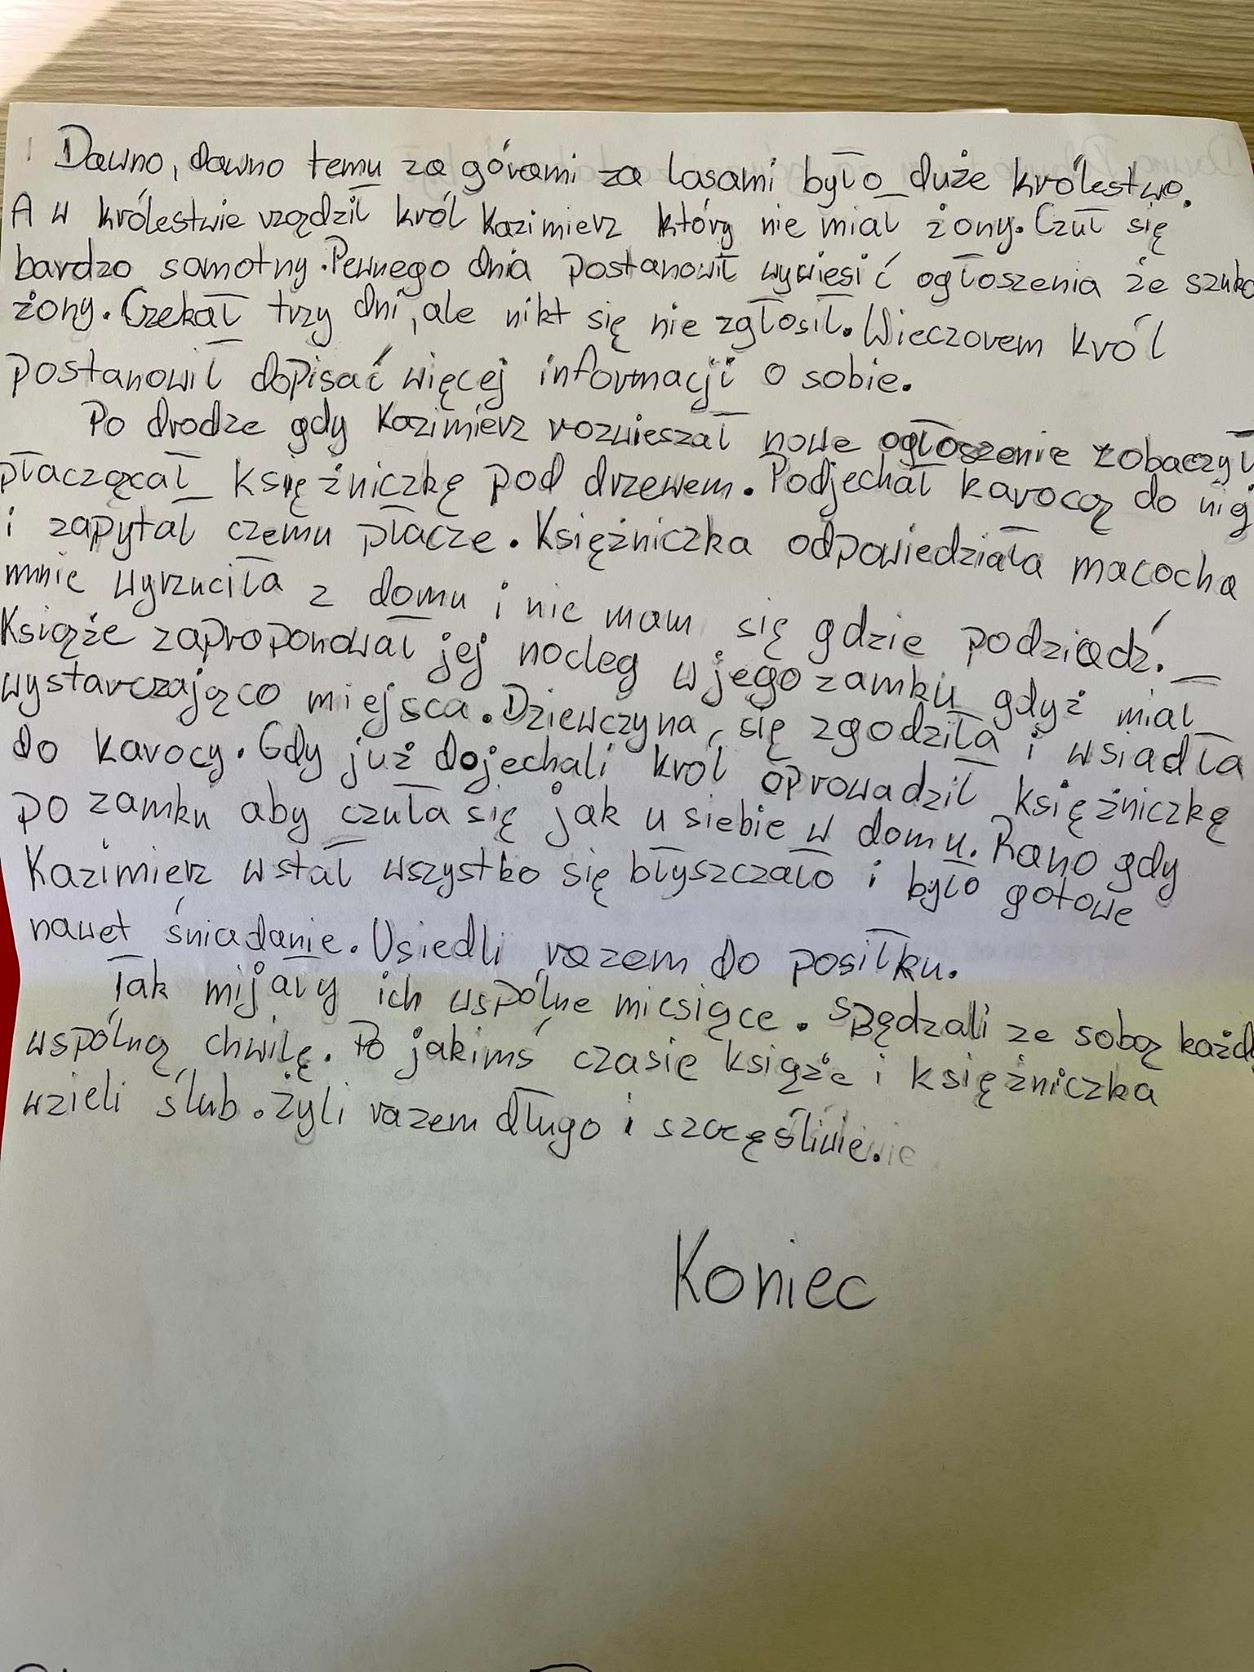 Dawno, dawno temu za górami za lasami było duże królestwo.
A w królestwie rządził król Kazimierz który nie miał żony. Czuł się
bardzo samotny. Pewnego dnia postanowił wywiesić ogłoszenia że szuka
żony. Czekał trzy dni, ale nikt się nie zgłosił. Wieczorem król
postanowił dopisać więcej informacji o sobie.
Po drodze gdy Kazimierz rozwieszał nowe ogłoszenie zobaczył
płaczącał księżniczkę pod drzewem. Podjechał karocą do niej
i zapytał czemu płacze. Księżniczka odpowiedziała macocha
mnie wyrzuciła z domu i nie mam się gdzie podziadź.
Książe zaproponował jej nocleg w jego zamku gdyż miał
wystarczająco miejsca. Dziewczyna się zgodziła i wsiadła
do karocy. Gdy już dojechali król oprowadził księżniczkę
po zamku aby czuła się jak u siebie w domu. Rano gdy
Kazimierz wstał wszystko się błyszczało i było gotowe
nawet śniadanie. Usiedli razem do posiłku.
Tak mijały ich wspólne miesiące. Spędzali ze sobą każdą
wspólną chwilę. Po jakimś czasie książe i księżniczka
wzieli ślub. Żyli razem długo i szczęśliwie.
Koniec